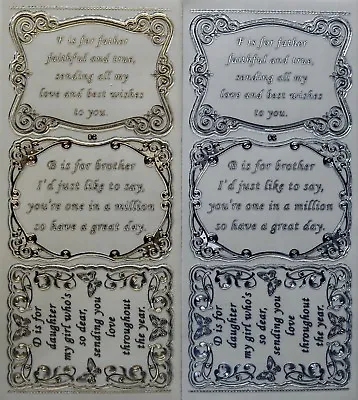 F is for father
faithful and true,
sending all my
love and best wishes
to you.
B is for brother
I'd just like to say,
you're one in a million
so have a great day.
D is for
daughter
my girl who's
so dear,
sending you
love
throughout
the year.
F is for father
faithful and true,
sending all my
love and best wishes
to you.
B is for brother
I'd just like to say,
you're one in a million
so have a great day.
D is for
daughter
my girl who's
so dear,
sending you
love
throughout
the year.